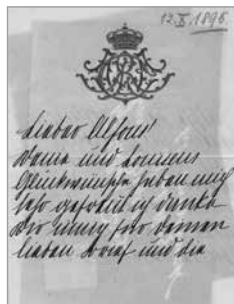 12.X.1896.
Lieber Alfons!
Deine und Louisens
Glückwünsche haben mich
sehr gefreut ich danke
Dir innig für Deinen
lieben Brief und die